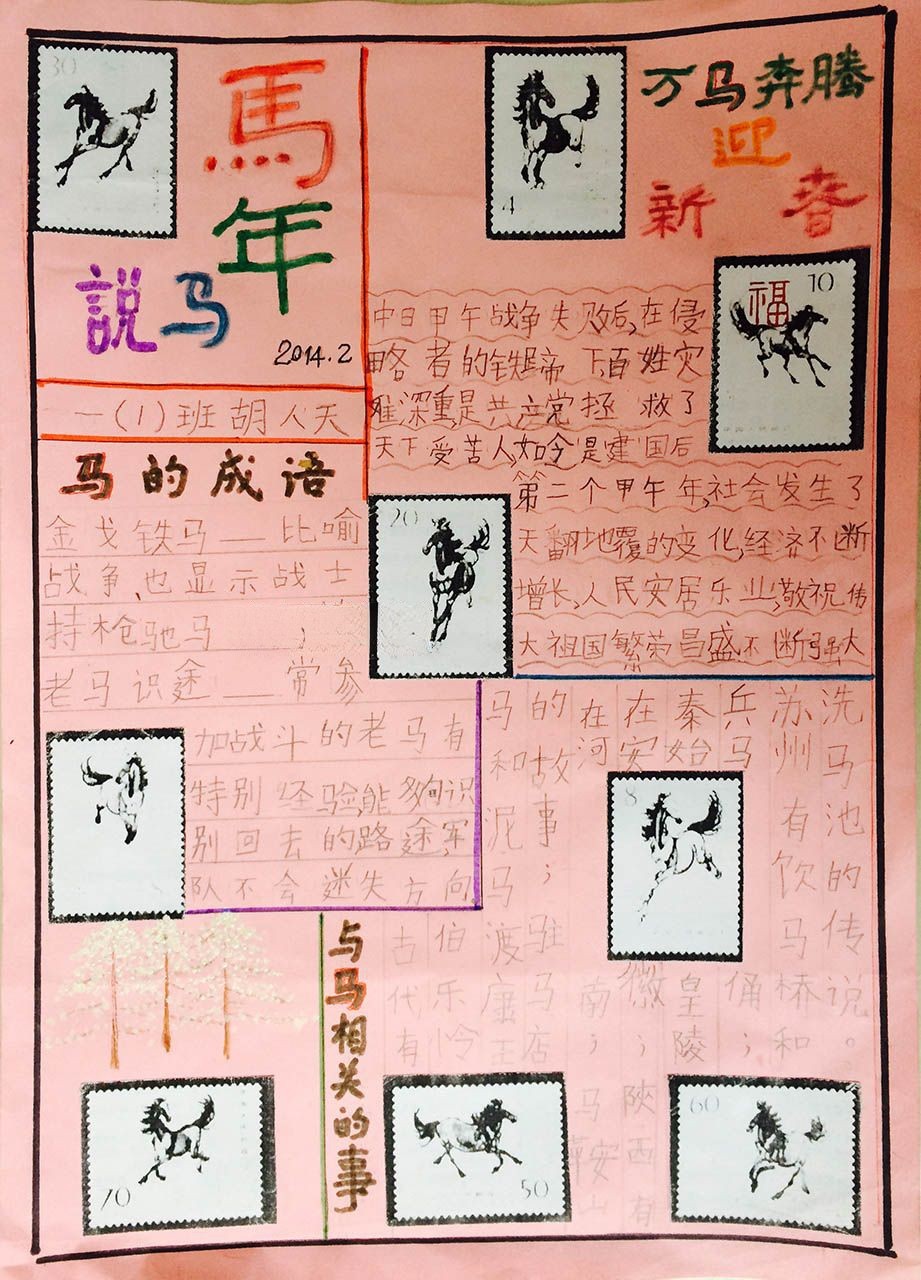 30
馬
年
説马
2014.2
一(1)班胡人天
4
万马奔腾
迎
新春
福 10
中日甲午战争失败后,在侵
略者的铁蹄下百姓灾
难深重,是共产党拯救了
天下受苦人,如今是建国后
第二个甲午年,社会发生了
天翻地覆的变化,经济不断
增长,人民安居乐业,敬祝伟
大祖国繁荣昌盛不断强大
马的成语
金戈铁马——比喻
战争,也显示战士
持枪驰马；
老马识途——常参
加战斗的老马有
特别经验,能夠识
别回去的路途,军
队不会迷失方向
20
与马相关的事
古代有
伯乐怜
马和泥马渡康王
的故事；驻马店
在河南；马鞍山
在安徽；陝西有
秦始皇陵
兵马俑；
苏州有饮马桥和
洗马池的传说。
8
70
50
60